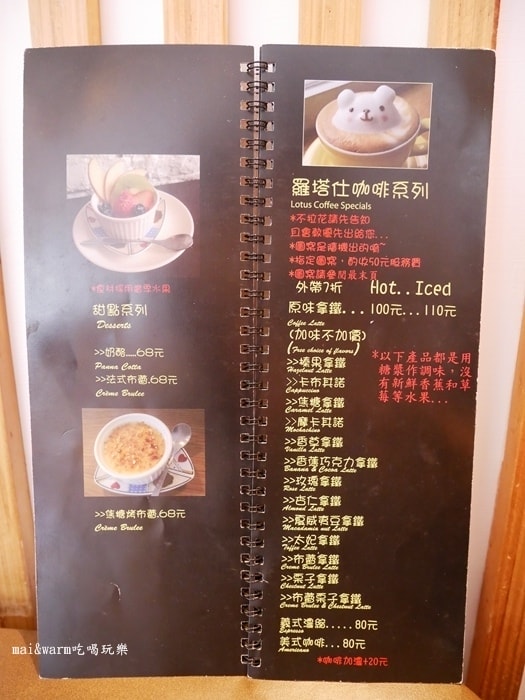 甜點系列
Desserts
>>奶酪....68元
Panna Cotta
>>法式布蕾.68元
Crème Brulee
>>焦糖烤布蕾.68元
Crème Brulee
mai&warm吃喝玩樂
羅塔仕咖啡系列
Lotus Coffee Specials
*不拉花請先告知
且會較優先出給您...
*圖案是隨機出的唷~
*指定圖案,酌收50元服務費
*圖案請參閱最末頁
外帶7折 Hot..Iced
原味拿鐵...100元...110元
Coffee Latte
(加味不加價)
(Free choice of flavors)
>>榛果拿鐵
Hazelnut Latte
>>卡布其諾
Cappuccino
>>焦糖拿鐵
Caramel Latte
>>摩卡其諾
Mochachino
>>香草拿鐵
Vanilla Latte
>>香蕉巧克力拿鐵
Banana & Cocoa Latte
>>玫瑰拿鐵
Rose Latte
>>杏仁拿鐵
Almond Latte
>>夏威夷豆拿鐵
Macadamia nut Latte
>>太妃拿鐵
Toffee Latte
>>布蕾拿鐵
Creme Brulee Latte
>>栗子拿鐵
Chestnut Latte
>>布蕾栗子拿鐵
Creme Brulee & Chestnut Latte
*以下產品都是用
糖漿作調味,沒
有新鮮香蕉和草
莓等水果...
義式濃縮.....80元
Espresso
美式咖啡...80元
Americano
*咖啡加濃+20元